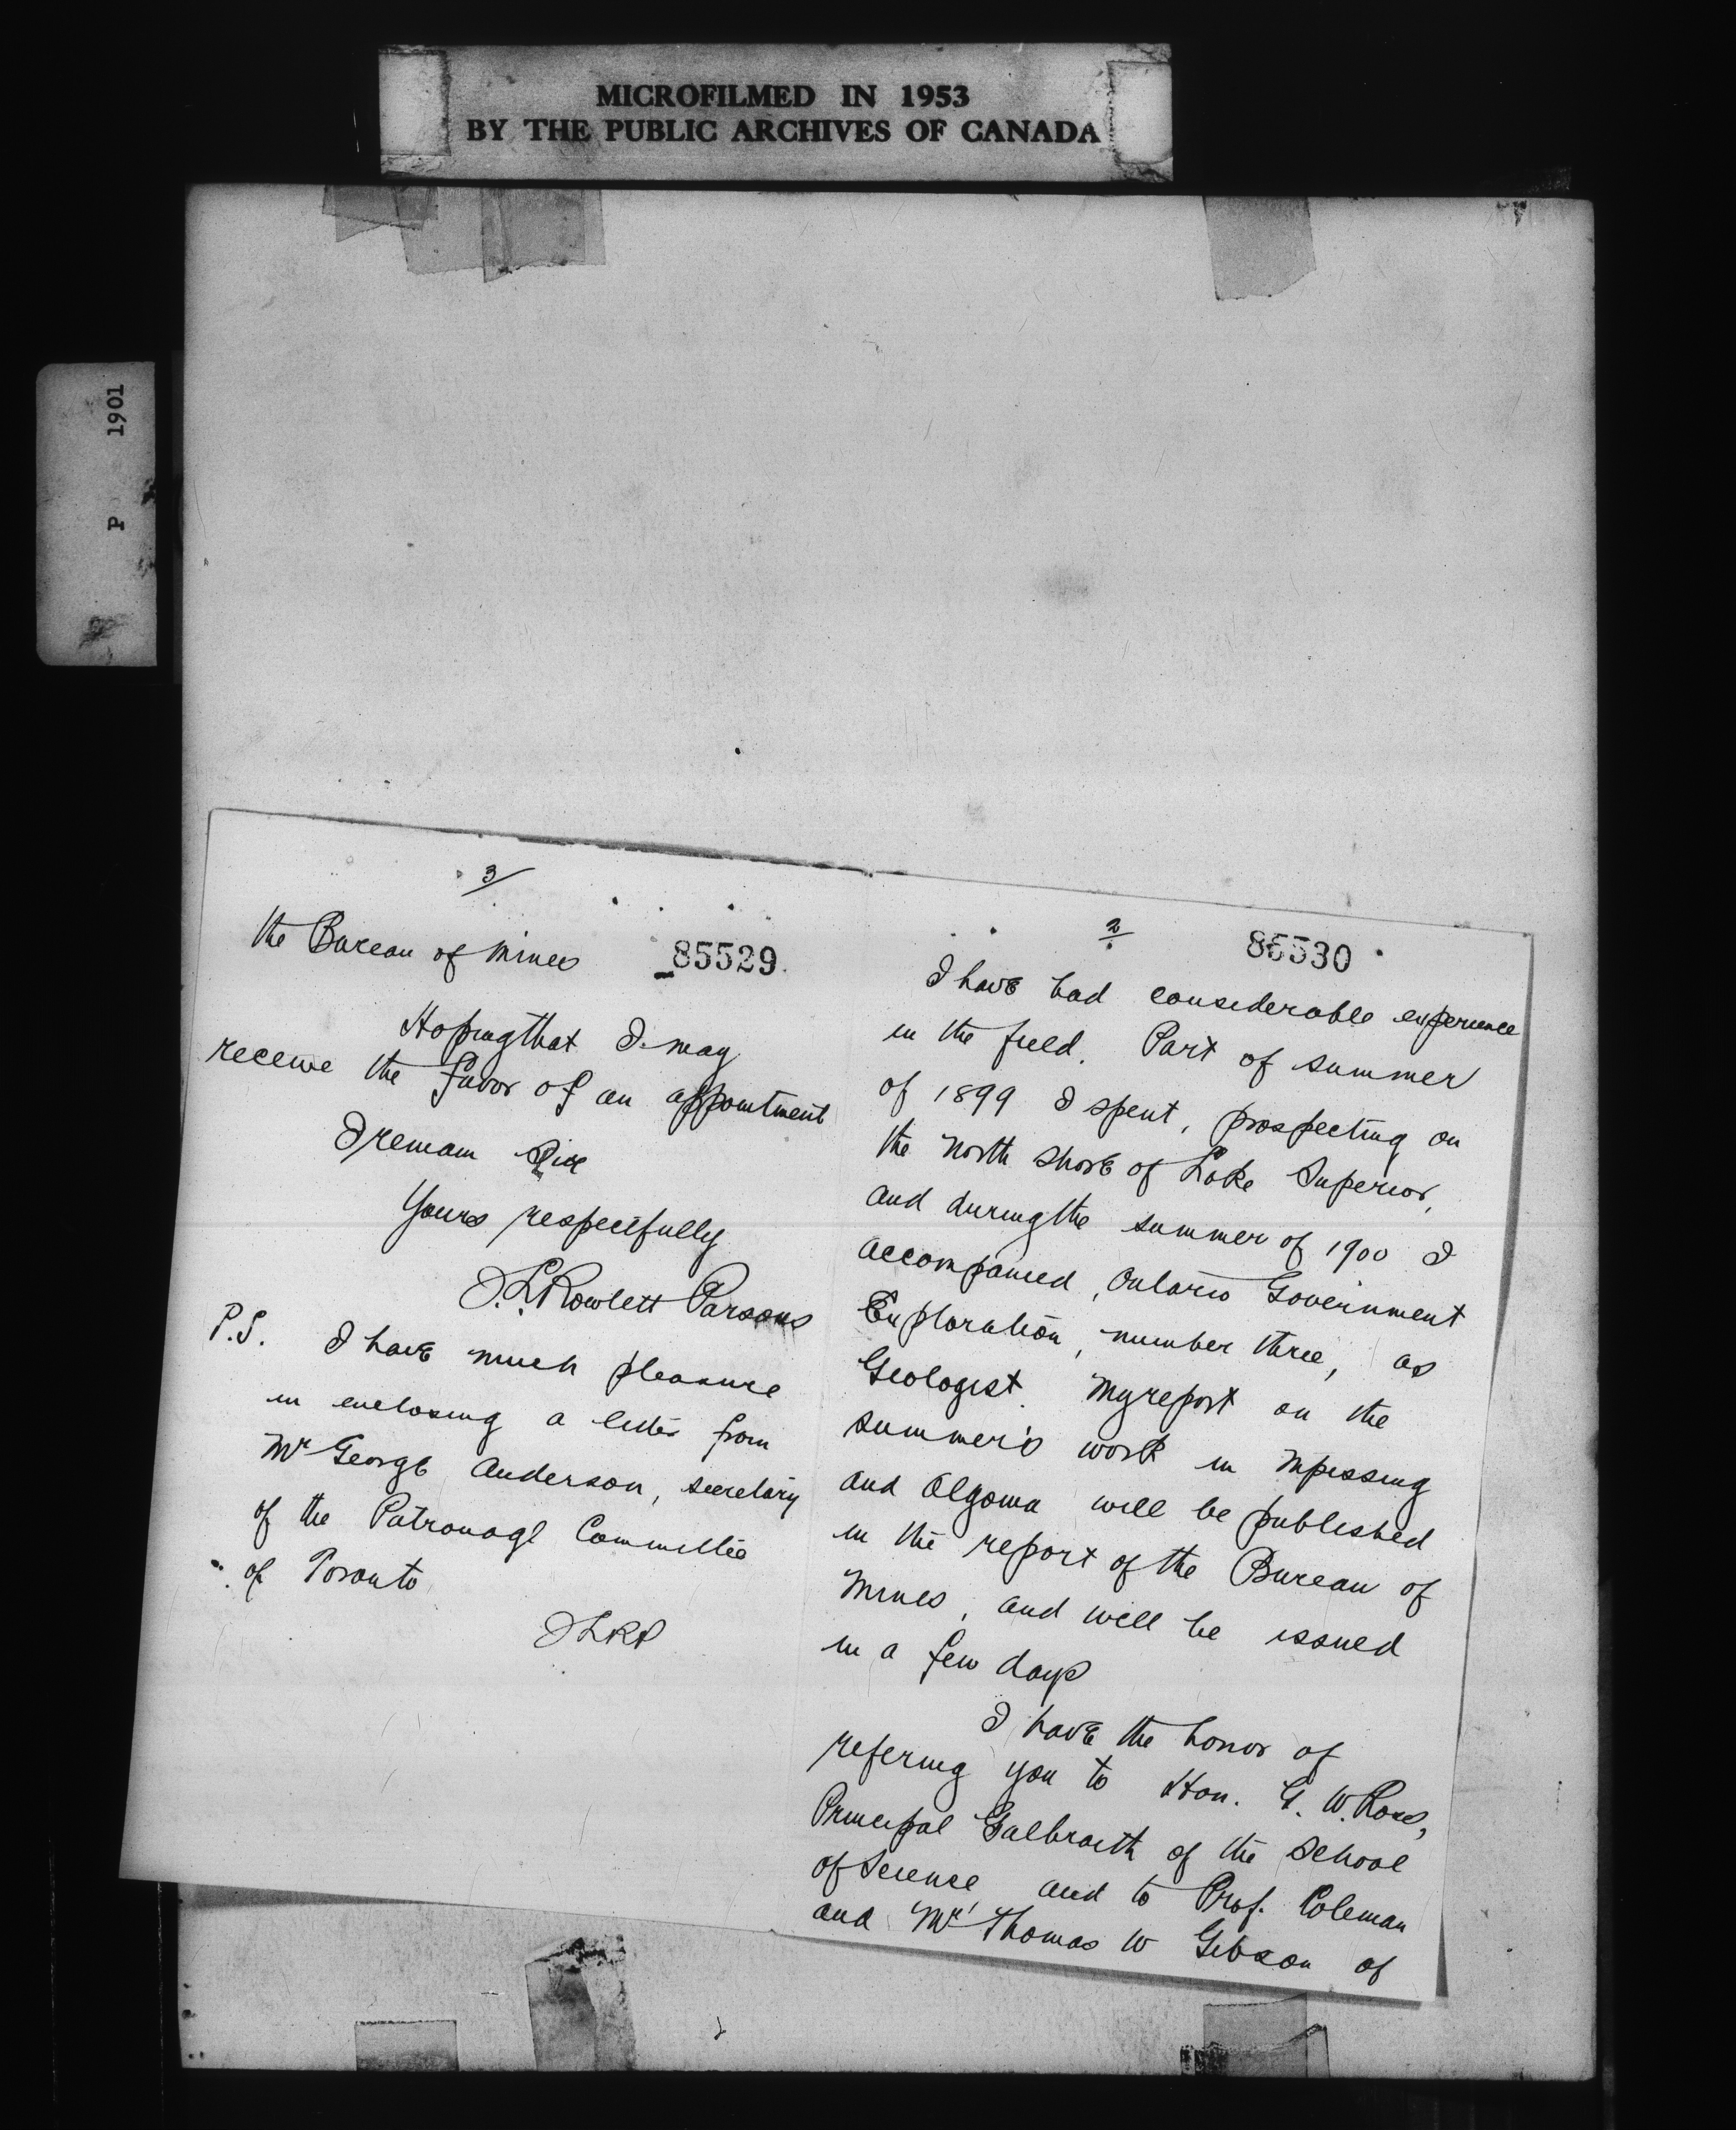 MICROFILMED IN 1953
BY THE PUBLIC ARCHIVES OF CANADA
P 1901
3/
85529
the Bureau of Mines
Hoping that I may
receive the favor of an appointment
I remain Sir
Yours respectfully
J. L. Rowlett Parsons
P.S. I have much pleasure
in enclosing a letter from
Mr George Anderson, secretary
of the Patronage Committee
of Toronto
JLRP
2
85530
I have had considerable experience
in the field. Part of summer
of 1899 I spent, prospecting on
the North Shore of Lake Superior,
and during the summer of 1900 I
accompanied, Ontario Government
Exploration, number three, as
Geologist. My report on the
summer's work in Nipissing
and Algoma will be published
in the report of the Bureau of
Mines, and will be issued
in a few days
I have the honor of
refering you to Hon. G. W. Ross,
Principal Galbraith of the School
of Science, and to Prof. Coleman
and Mr Thomas W Gibson of